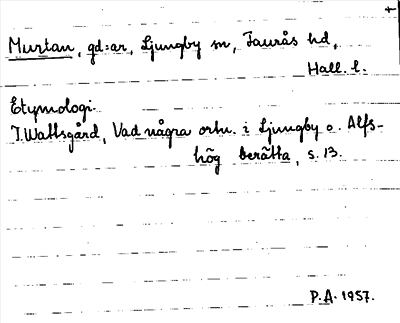 Murtan, gd:ar, Ljungby sn, Faurås hd,
Hall. l.
Etymologi.
J. Wattsgård, Vad några ortn. i Ljungby o. Alfs-
hög berätta, s. 13.
P.A. 1957.